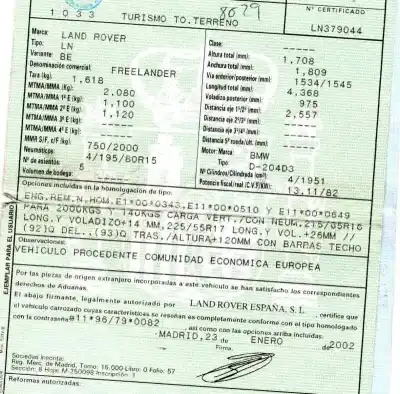 Nº CERTIFICADO
1033 TURISMO TO.TERRENO 8029 LN379044
Marca: LAND ROVER
Tipo: LN
Variante: BE
Denominación comercial: FREELANDER
Tara (kg): 1,618
MTMA/MMA (Kg): 2,080
MTMA/MMA 1º E (kg): 1,100
MTMA/MMA 2º E (kg): 1,120
MTMA/MMA 3º E (kg): -----
MTMA/MMA 4º E (kg): -----
MMR S/F, c/F (kg) 750/2000
Neumáticos: 4/195/80R15
Nº de asientos: 5
Volumen de bodega: -----
Clase: -----
Altura total (mm): 1,708
Anchura total (mm): 1,809
Vía anterior/posterior (mm): 1534/1545
Longitud total (mm): 4,368
Voladizo posterior (mm): 975
Distancia eje 1º/2º (mm): 2,557
Distancia eje 2º/3º (mm): -----
Distancia eje 3º/4º (mm): -----
Distancia 5ª rueda/últ. (mm): -----
Motor: Marca: BMW
Tipo: D-204D3
Nº Cilindros/Cilindrada (cm³): 4/1951
Potencia fiscal/real (C.V.F/KW): 13,11/82
Opciones incluidas en la homologación de tipo:
ENG.REM.N.HOM.E1*00*0343,E11*00*0510 Y E11*00*0649
PARA 2000KGS Y 140KGS CARGA VERT./CON NEUM.215/65R16
LONG.Y VOLADIZO+14 MM,225/55R17 LONG.Y VOL.+26MM //
(92)Q DEL..(93)Q TRAS./ALTURA+120MM CON BARRAS TECHO
Observaciones:
VEHICULO PROCEDENTE COMUNIDAD ECONOMICA EUROPEA
EJEMPLAR PARA EL USUARIO
Por las piezas de origen extranjero incorporadas a este vehículo se han satisfecho los correspondientes
derechos de Aduanas.
El abajo firmante, legalmente autorizado por LAND ROVER ESPAÑA, S. L. , certifica que
el vehículo carrozado cuyas características se reseñan es completamente conforme con el tipo homologado
con la contraseña #11*96/79*0082 , así como con las opciones arriba incluidas.
MADRID, 23 de ENERO de 2002
Firma,
Sociedad Inscrita:
Reg. Merc. de Madrid, Tomo: 15.000 Libro: 0 Folio: 57
Sección: 8 Hoja: M-250098 Inscripción: 1
Reformas autorizadas: